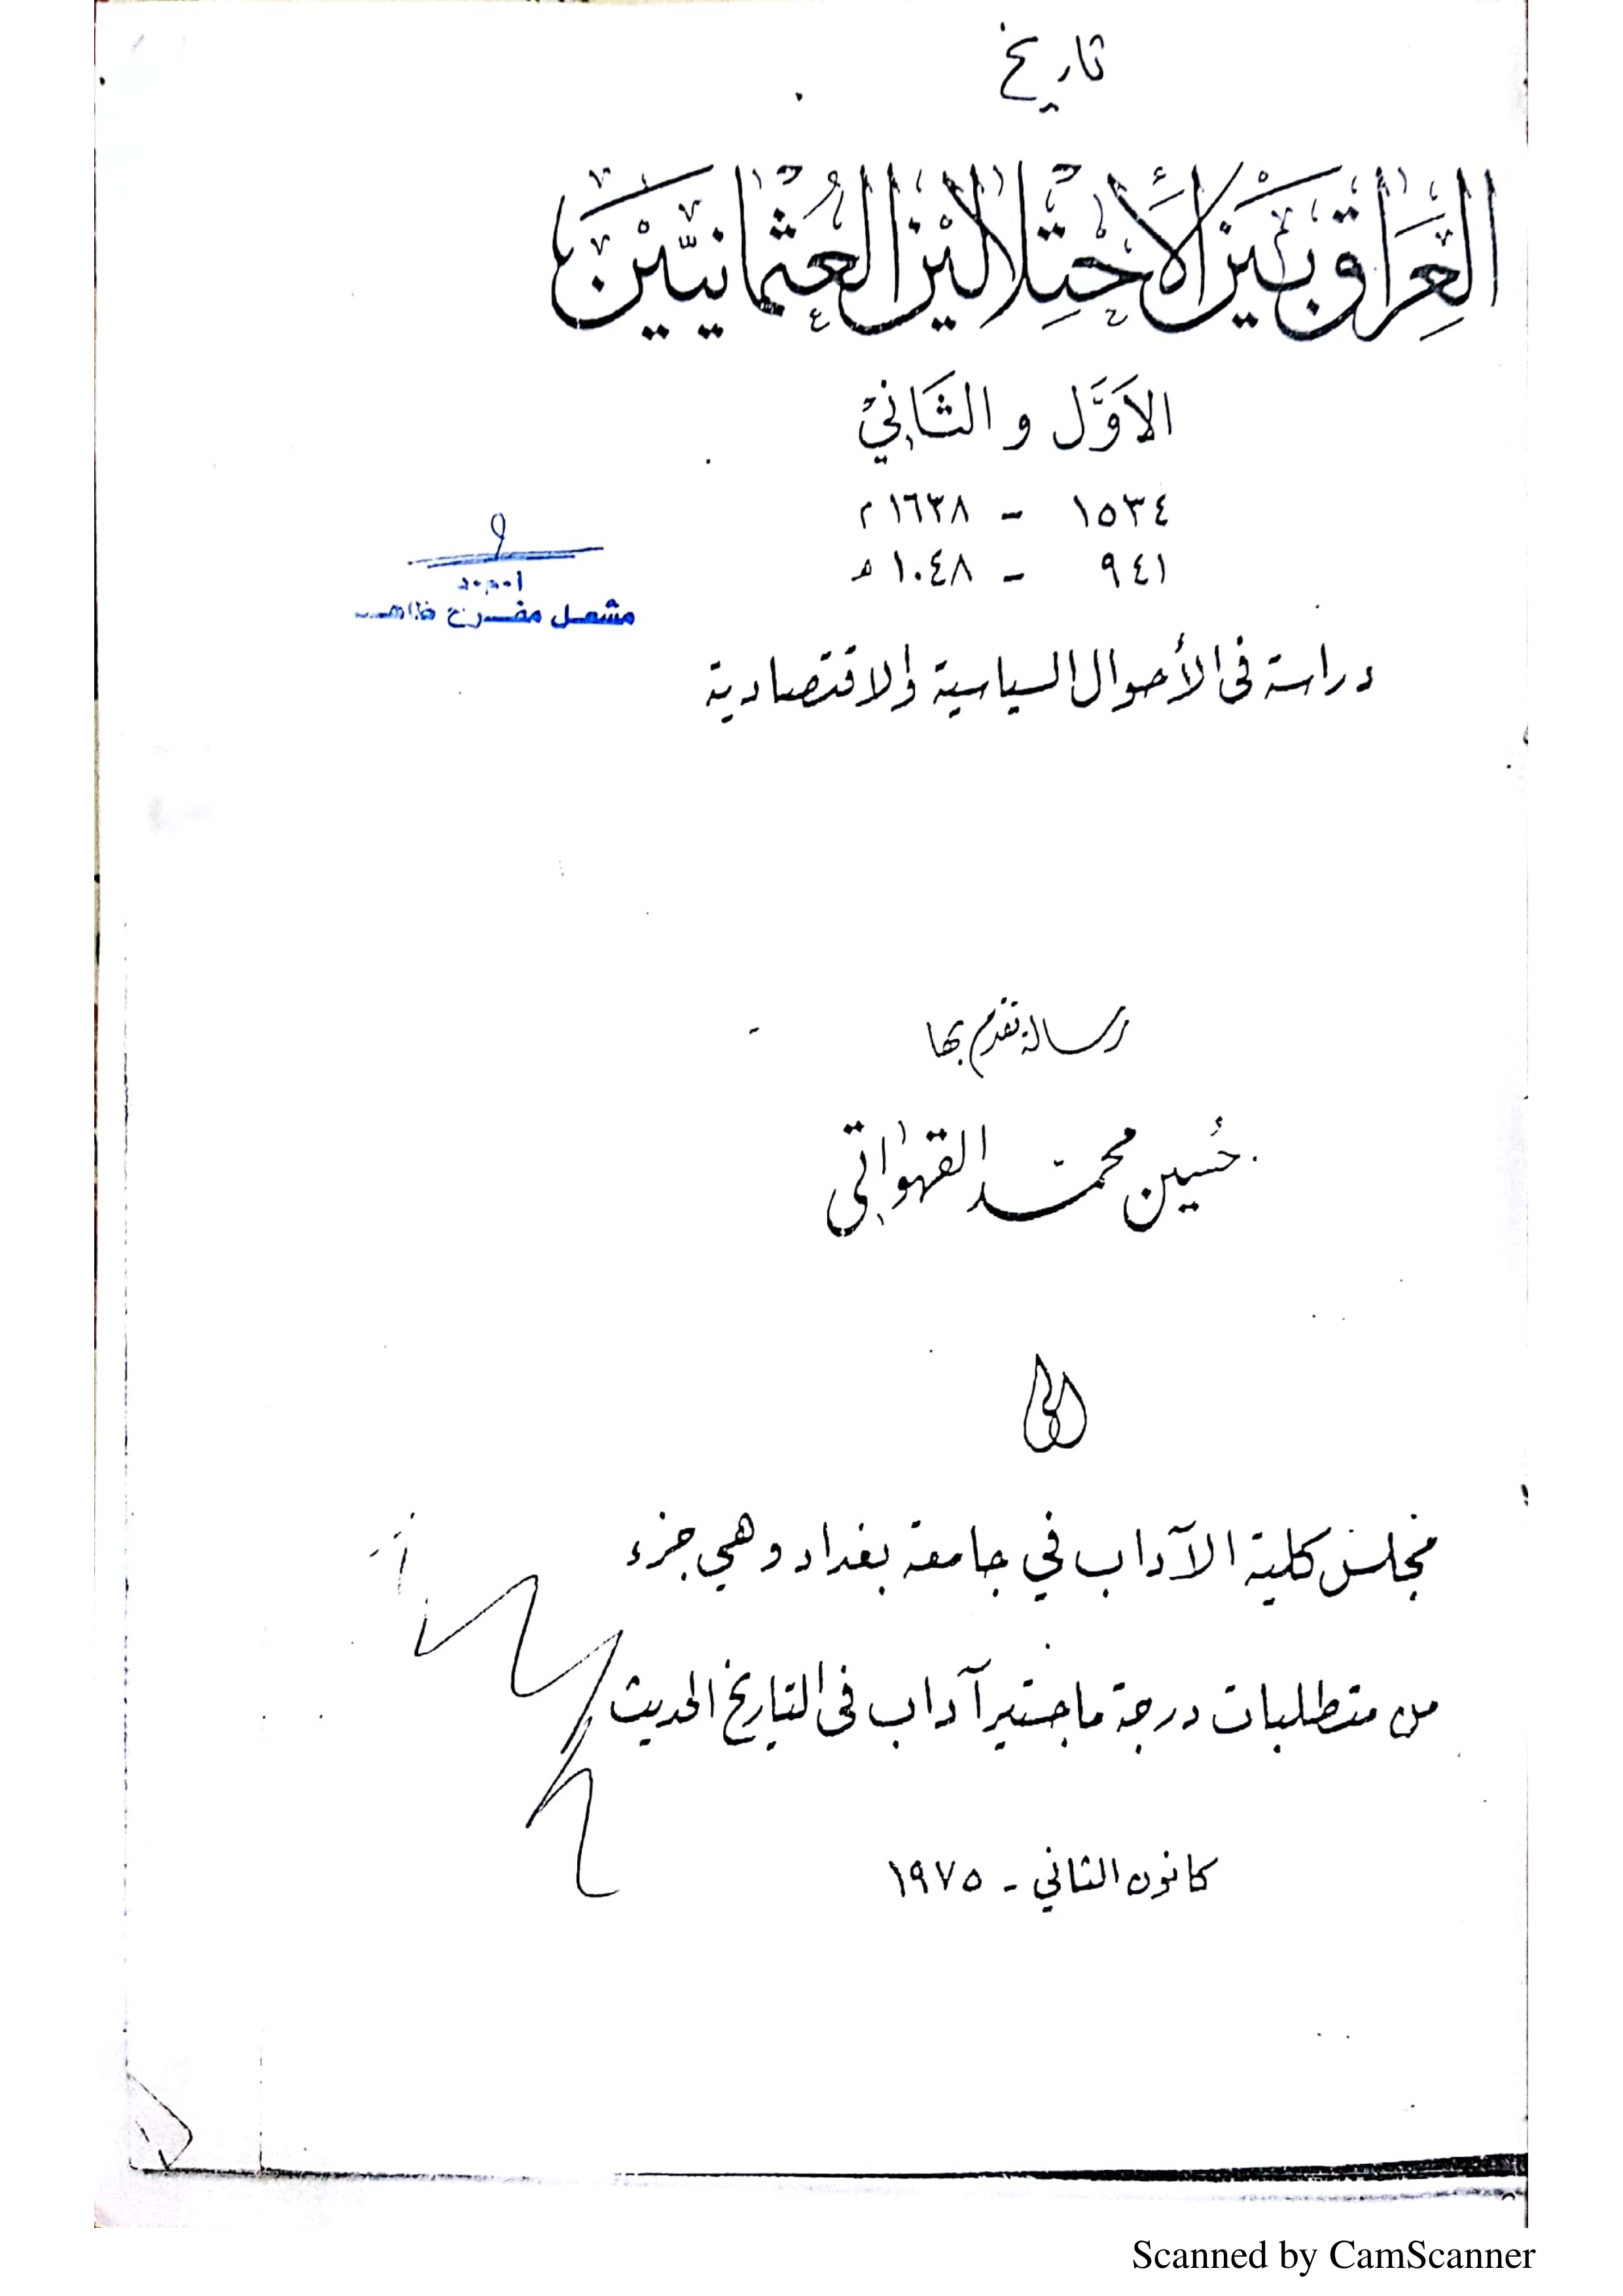 تاريخ
العِرَاق بَيْن الأَحْتِلالَيْن العُثمانِيَّيْنَ
الاَوَّل و الثَاني
١٥٣٤ - ١٦٣٨ م
٩٤١ - ١٠٤٨ هـ
ا.م.د
مشعل مفرح ظاهر
دراسة فى الأحوال السياسية والاقتصادية
رسالة تقدم بها
حُسين محمد القهواتي
الى
مجلس كلية الآداب في جامعة بغداد وهي جزء
من متطلبات درجة ماجستير آداب فى التاريخ الحديث
كانون الثاني - ١٩٧٥
Scanned by CamScanner